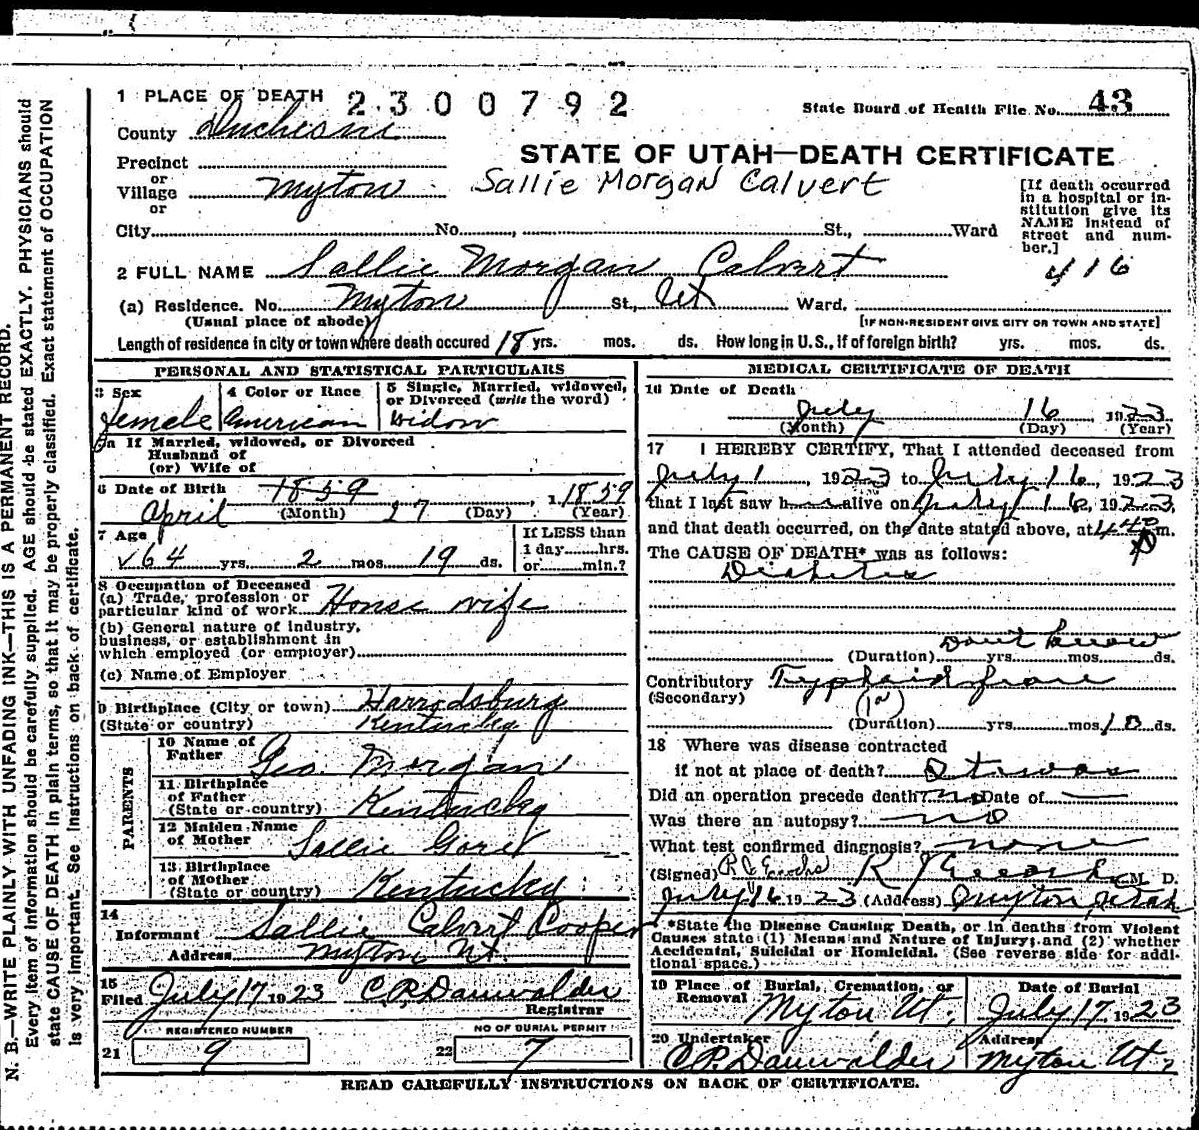 1 PLACE OF DEATH 2300792
State Board of Health File No. 43
County Duchesne
STATE OF UTAH—DEATH CERTIFICATE
Precinct
or
Village Myton Sallie Morgan Calvert
or
City No. St., Ward
[If death occurred
in a hospital or in-
stitution give its
NAME instead of
street and num-
ber.]
416
2 FULL NAME Sallie Morgan Calvert
(a) Residence. No. Myton St., Ut Ward.
(Usual place of abode) [IF NON-RESIDENT GIVE CITY OR TOWN AND STATE]
Length of residence in city or town where death occured 18 yrs. mos. ds. How long in U.S., if of foreign birth? yrs. mos. ds.
PERSONAL AND STATISTICAL PARTICULARS
3 Sex 4 Color or Race 5 Single, Married, widowed,
or Divorced (write the word)
Female American Widow
5a If Married, widowed, or Divorced
Husband of
(or) Wife of
6 Date of Birth 1859 1859
April (Month) 27 (Day) (Year)
7 Age If LESS than
1 day hrs.
64 yrs. 2 mos 19 ds. or min.?
8 Occupation of Deceased
(a) Trade, profession or
particular kind of work House wife
(b) General nature of industry,
business, or establishment in
which employed (or employer)
(c) Name of Employer
9 Birthplace (City or town) Harrodsburg
(State or country) Kentucky
PARENTS
10 Name of
Father Geo. Morgan
11 Birthplace
of Father
(State or country) Kentucky
12 Maiden Name
of Mother Sallie
13 Birthplace
of Mother
(State or country) Kentucky
14
Informant Sallie Calvert Cooper
Address Myton Ut.
15
Filed July 17 1923 C.P. Dauwalder
Registrar
REGISTERED NUMBER NO OF BURIAL PERMIT
21 9 22 7
MEDICAL CERTIFICATE OF DEATH
16 Date of Death
July 16 1923
(Month) (Day) (Year)
17 I HEREBY CERTIFY, That I attended deceased from
July 1, 1923 to July 16, 1923
that I last saw h alive on July 16, 1923
and that death occurred, on the date stated above, at 4 40 m.
P
The CAUSE OF DEATH* was as follows:
Diabetes
Dont know
(Duration) yrs. mos. ds.
Contributory Typhoid fever
(Secondary)
(Duration) yrs. mos. 10 ds.
18 Where was disease contracted
if not at place of death? It was
Did an operation precede death? no Date of —
Was there an autopsy? no
What test confirmed diagnosis? none
(Signed) M. D.
July 16 1923 (Address) Myton, Utah
*State the Disease Causing Death, or in deaths from Violent
Causes state (1) Means and Nature of Injury; and (2) whether
Accidental, Suicidal or Homicidal. (See reverse side for addi-
tional space.)
19 Place of Burial, Cremation, or
Removal Myton Ut.
Date of Burial
July 17, 1923
20 Undertaker Address
C.P. Dauwalder Myton Ut.
READ CAREFULLY INSTRUCTIONS ON BACK OF CERTIFICATE.
N. B.—WRITE PLAINLY WITH UNFADING INK—THIS IS A PERMANENT RECORD.
Every item of information should be carefully supplied. AGE should be stated EXACTLY. PHYSICIANS should
state CAUSE OF DEATH in plain terms, so that it may be properly classified. Exact statement of OCCUPATION
is very important. See instructions on back of certificate.